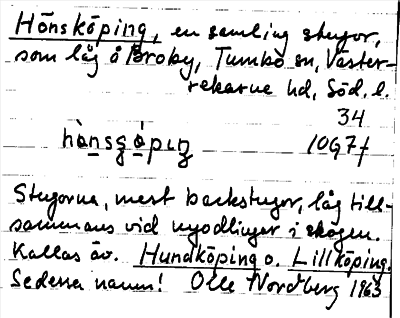 Hönsköping, en samling stugor,
som låg å Broby, Tumbo sn, Väster-
rekarne hd, Söd. l.
34
hö̀nsʂö́pıŋ 10G7f
Stugorna, mest backstugor, låg till-
sammans vid nyodlingar i skogen.
Kallas äv. Hundköping o. Lillköping.
Sedessa namn! Olle Nordberg 1963